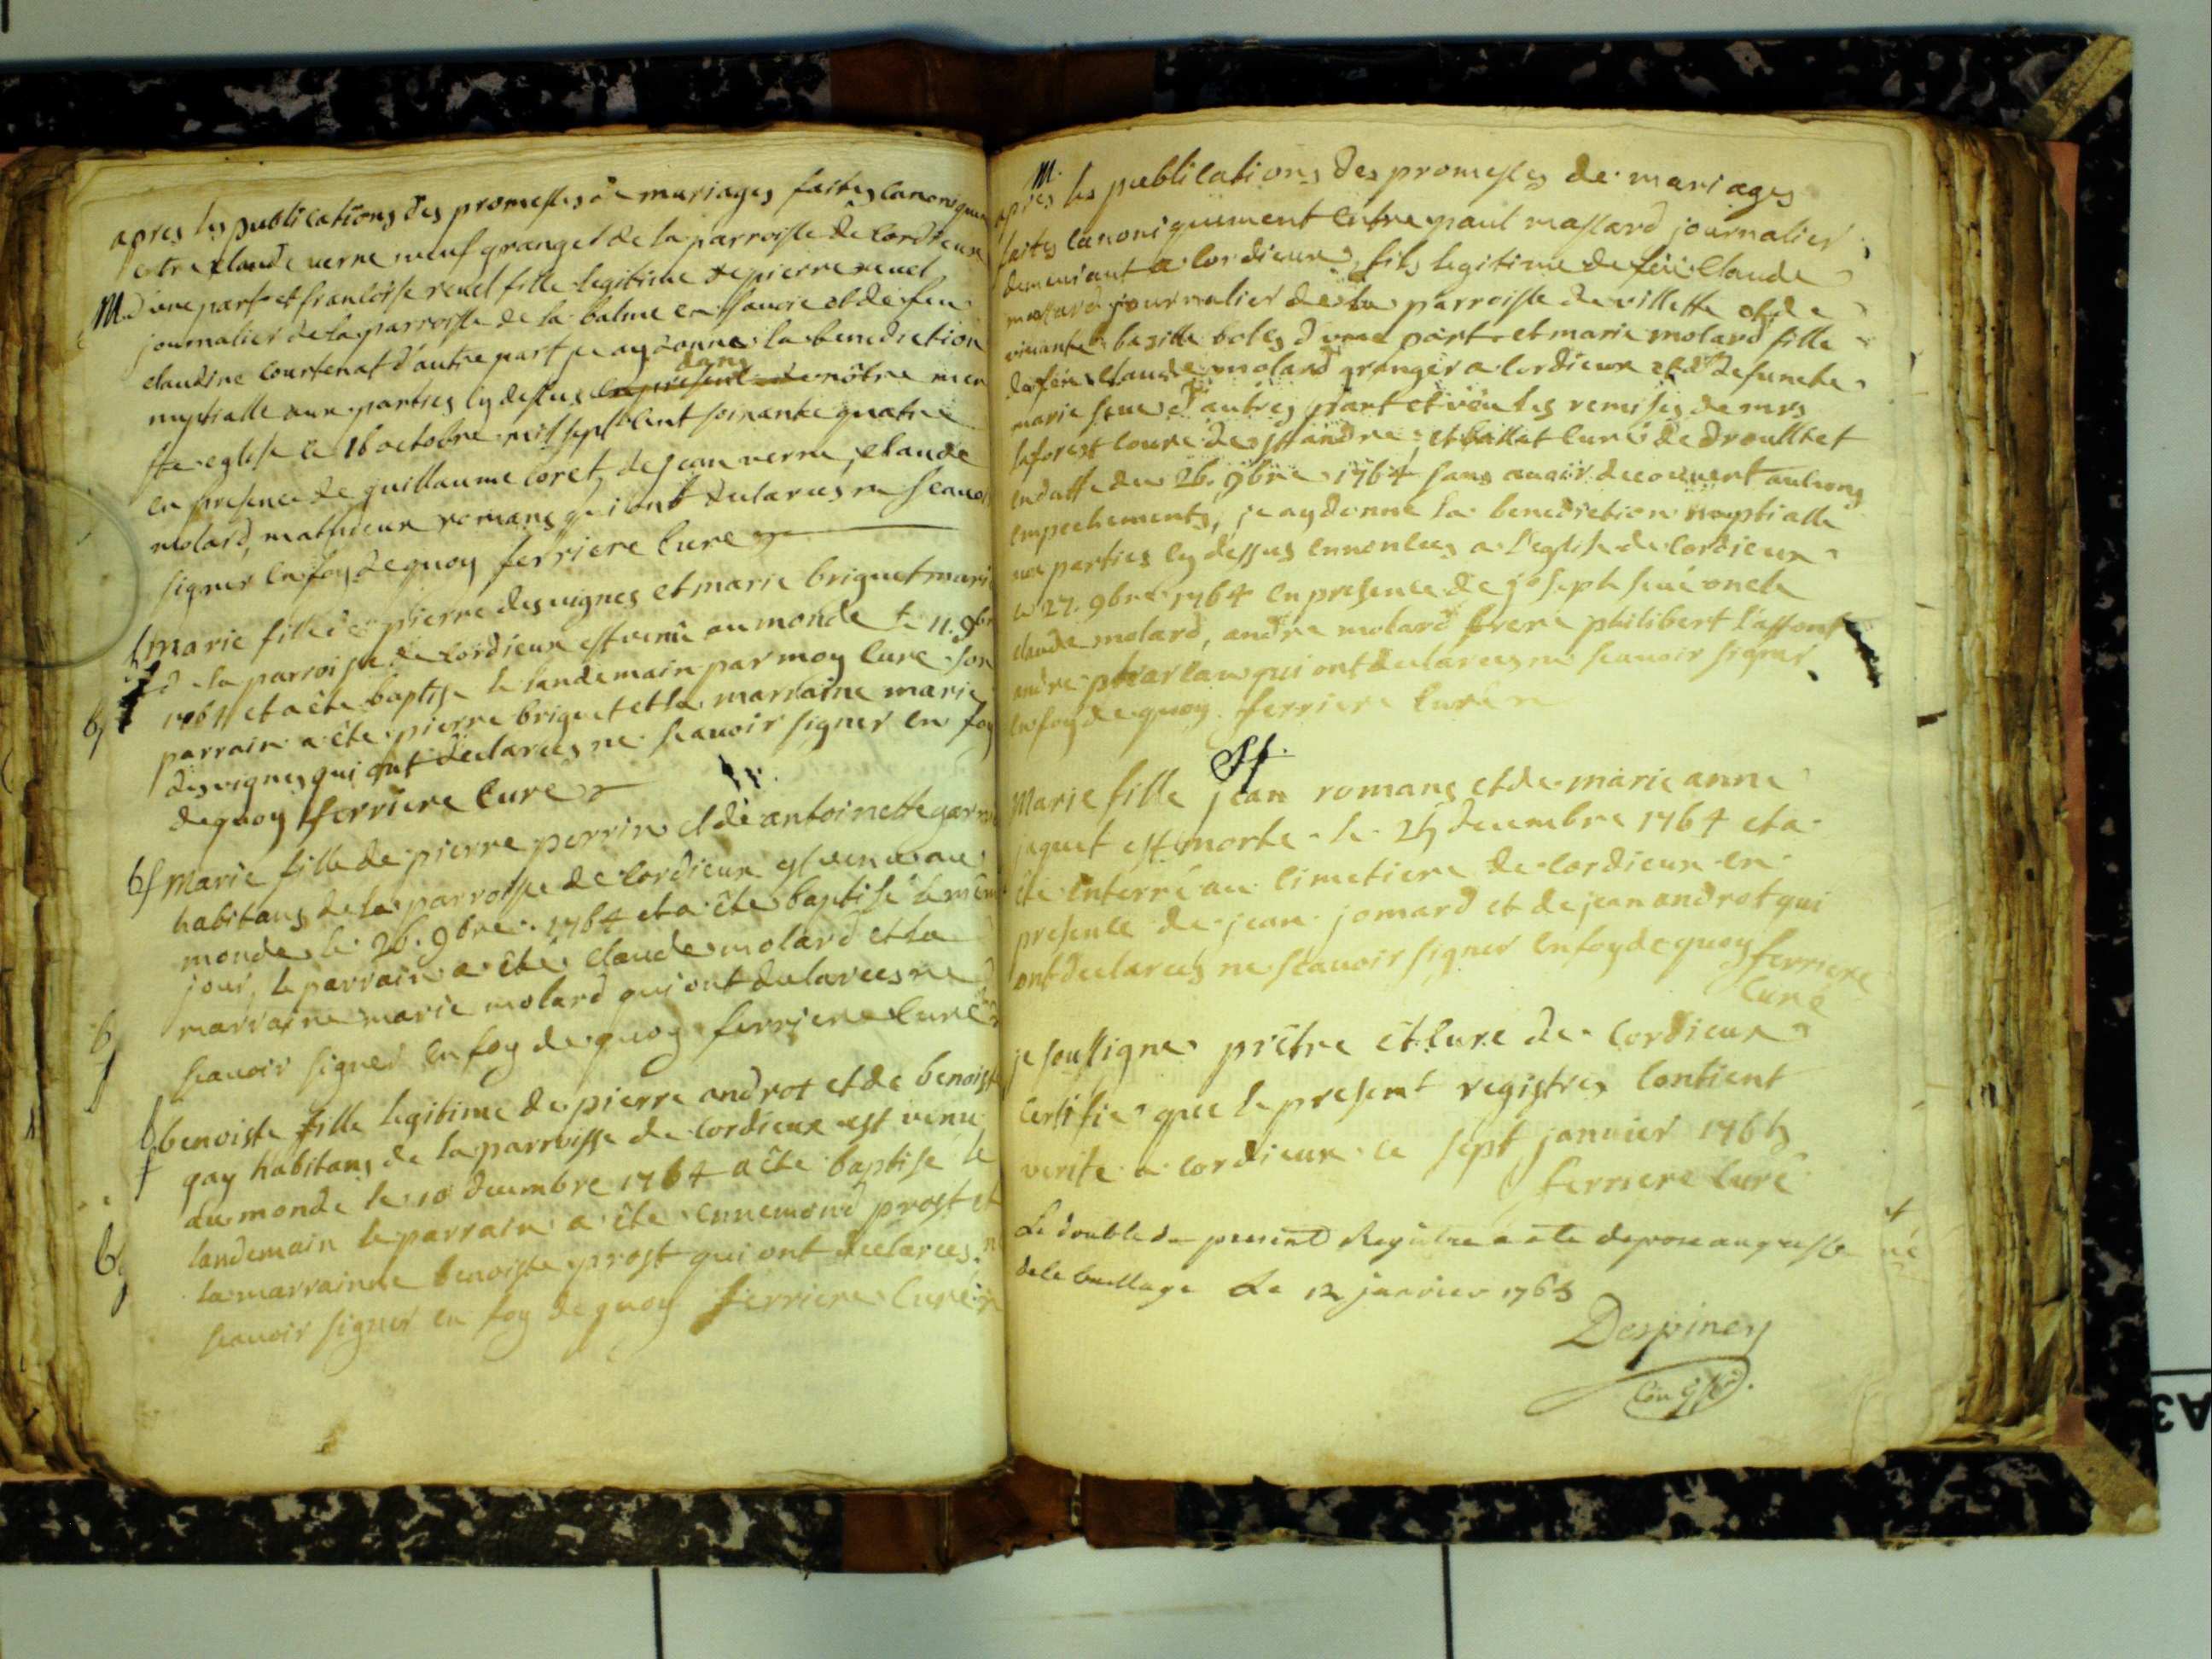 apres les publications des promesses de mariages faites canonique
entre claude verne veuf granger de la parroisse de cordieux
M d'une part et francoise revel fille legitime de pierre revel
journalier de la parroisse de la balme en savoie et de feu
claudine courtenat d'autre part je ay donne la benediction
nuptialle aux parties cy dessus dans nôtre
ste eglise le 16 octobre mil sept cent soixante quatre
en presence de guillaume coret, de jean verne, claude
molard, mathieux romans qui ont declarces ne scavoir
signer en foy de quoy ferriere cure
marie fille de pierre desvignes et marie briguet
de la parroisse de cordieux est venu au monde le 11. 9br
1764 et a ête baptise le landemain par moy cure son
parrain a ête pierre briguet et la marraine marie
desvignes qui ont declarces ne scavoir signer en foy
de quoy ferriere cure
bf marie fille de pierre perrin et de antoinette
habitans de la parroisse de cordieux est venu au
monde le 26. 9bre. 1764 et a ête baptisé le
jour, le parrain a êté claude molard et la
marraine marie molard qui ont declarces ne
scavoir signer en foy de quoy ferriere curé
bf benoiste fille legitime de pierre androt et de benoiste
gay habitans de la parroisse de cordieux est venu
au monde le 10 decembre 1764 a ête baptise le
landemain le parrain a ête ennemond prost et
la marrainne benoiste prost qui ont declarces ne
scavoir signer en foy de quoy ferriere curé
M.
apres les publications des promesses de mariages
faites canoniquement entre paul massard journalier
demeurant a cordieux, fils legitime de feu claude
massard journalier de la parroisse de villette et de
vivante bazille d'une part et marie molard fille
de feu claude molard granger a cordieux et de defuncte
marie d'autres part et veu les remises de mrs
laforest curé de st andré, et curé de droullet
en datte du 26. 9bre 1764 sans avoir decouvert aulcuns
empechements, je ay donne la benediction nuptialle
aux parties cy dessus ennoncees a l'eglise de cordieux
le 27. 9bre 1764 en presence de joseph oncle
claude molard, andre molard frere philibert
andre qui ont declarces ne scavoir signer
en foy de quoy ferriere curé
Sf.
Marie fille jean romans et de marie anne
jaquet est morte le decembre 1764 et a
été enterré au cimetiere de cordieux en
presence de jean jomard et de jean androt qui
ont declarces ne scavoir signer en foy de quoy ferriere
curé
je soussigne prêtre et cure de cordieux
certifie que le present registres contient
verite a cordieux ce sept janvier 1765
ferriere curé
Le double du present Registre a ete depose au greffe
de le bailliage Le 12 janvier 1765
Despiney